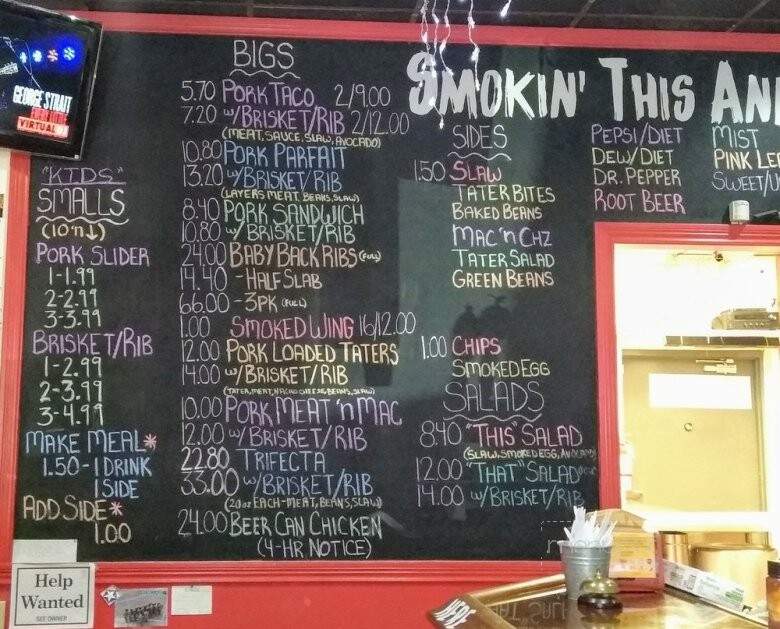 GEORGE STRAIT
VIRTUAL
"KIDS"
SMALLS
(10 'n ↓)
PORK SLIDER
1-1.99
2-2.99
3-3.99
BRISKET/RIB
1-2.99
2-3.99
3-4.99
MAKE MEAL*
1.50-1 DRINK
1 SIDE
ADD SIDE*
1.00
BIGS
5.70 PORK TACO 2/9.00
7.20 w/BRISKET/RIB 2/12.00
(MEAT, SAUCE, SLAW, AVOCADO)
10.80 PORK PARFAIT
13.20 w/BRISKET/RIB
(LAYERS MEAT, BEANS, SLAW)
8.40 PORK SANDWICH
10.80 w/BRISKET/RIB
24.00 BABY BACK RIBS (FULL)
14.40 -HALF SLAB
66.00 -3PK (FULL)
1.00 SMOKED WING 16/12.00
12.00 PORK LOADED TATERS
14.00 w/BRISKET/RIB
(TATER, MEAT, NACHO CHEESE, BEANS, SLAW)
10.00 PORK MEAT 'n MAC
12.00 w/BRISKET/RIB
22.80 TRIFECTA
33.00 w/BRISKET/RIB
(20oz EACH-MEAT, BEANS, SLAW)
24.00 BEER CAN CHICKEN
(4-HR NOTICE)
SMOKIN' THIS AN
SIDES
1.50 SLAW
TATER BITES
BAKED BEANS
MAC 'n CHZ
TATER SALAD
GREEN BEANS
1.00 CHIPS
SMOKED EGG
SALADS
8.40 "THIS" SALAD
(SLAW, SMOKED EGG, AVOCADO)
12.00 "THAT" SALAD
14.00 w/BRISKET/RIB
PEPSI/DIET
DEW/DIET
DR. PEPPER
ROOT BEER
MIST
PINK LE
SWEET/U
Help
Wanted
SEE OWNER